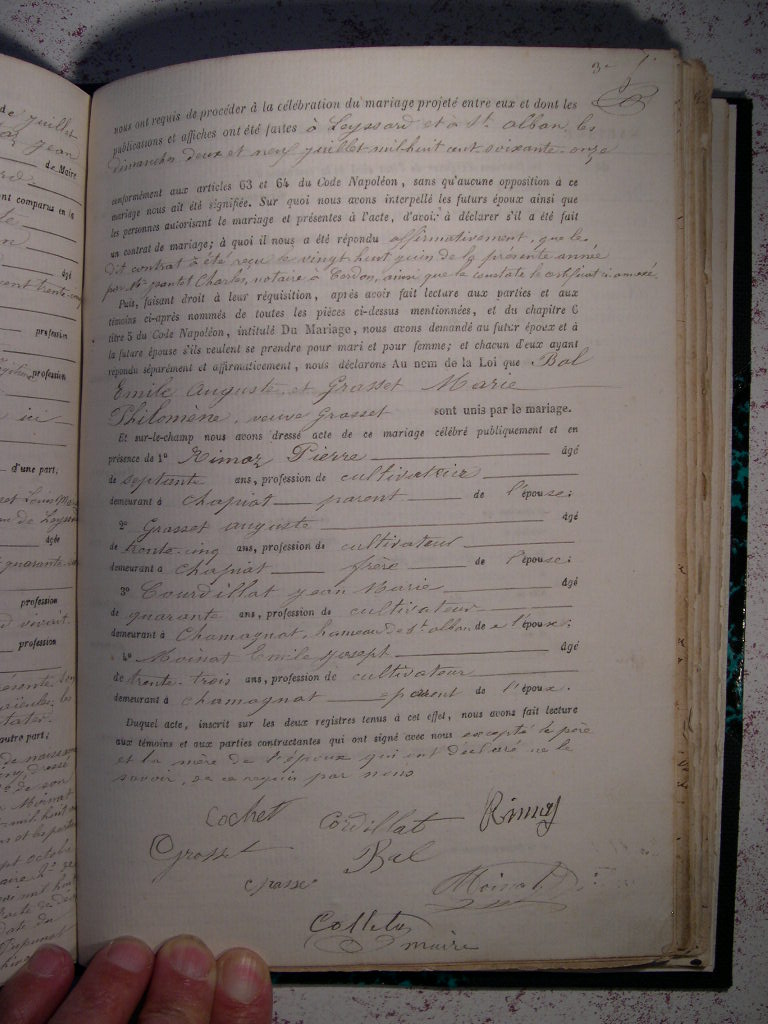 de juillet
Jean
de Maire
ont comparus en la
âgé
profession
profession
d'une part;
âgée
profession
profession
autre part;
3e
nous ont requis de procéder à la célébration du mariage projeté entre eux et dont les
publications et affiches ont été faites à Leyssard et à St. alban les
dimanches deux et neuf juillet mil huit cent soixante-onze
conformément aux articles 63 et 64 du Code Napoléon, sans qu'aucune opposition à ce
mariage nous ait été signifiée. Sur quoi nous avons interpellé les futurs époux ainsi que
les personnes autorisant le mariage et présentes à l'acte, d'avoir à déclarer s'il a été fait
un contrat de mariage; à quoi il nous a été répondu affirmativement, que le
dit contrat a été reçu le vingt huit juin de la présente année
par Me nantet Charles, notaire à Cerdon, ainsi que le constate le certificat ci annexé
Puis, faisant droit à leur réquisition, après avoir fait lecture aux parties et aux
témoins ci-après nommés de toutes les pièces ci-dessus mentionnées, et du chapitre 6
titre 5 du Code Napoléon, intitulé Du Mariage, nous avons demandé au futur époux et à
la future épouse s'ils veulent se prendre pour mari et pour femme; et chacun d'eux ayant
répondu séparément et affirmativement, nous déclarons Au nom de la Loi que Bal
Emile Auguste et Grasset Marie
Philomène, veuve Grasset sont unis par le mariage.
Et sur-le-champ nous avons dressé acte de ce mariage célébré publiquement et en
présence de 1° Rimoz Pierre âgé
de septante ans, profession de cultivateur
demeurant à chapiat parent de l'épouse;
2° Grasset auguste âgé
de trente-cinq ans, profession de cultivateur
demeurant à chapiat frère de l'épouse;
3° Courdillat jean Marie âgé
de quarante ans, profession de cultivateur
demeurant à Chamagnat, hameau de St. alban de l'époux;
4° Moinat Emile joseph âgé
de trente-trois ans, profession de cultivateur
demeurant à chamagnat parent de l'époux.
Duquel acte, inscrit sur les deux registres tenus à cet effet, nous avons fait lecture
aux témoins et aux parties contractantes qui ont signé avec nous excepté le père
et la mère de l'époux qui ont déclaré ne le
savoir, de ce requis par nous
Cochet Cordillat Rimoz
Grasset Bal
Moinat
Colletaz
maire